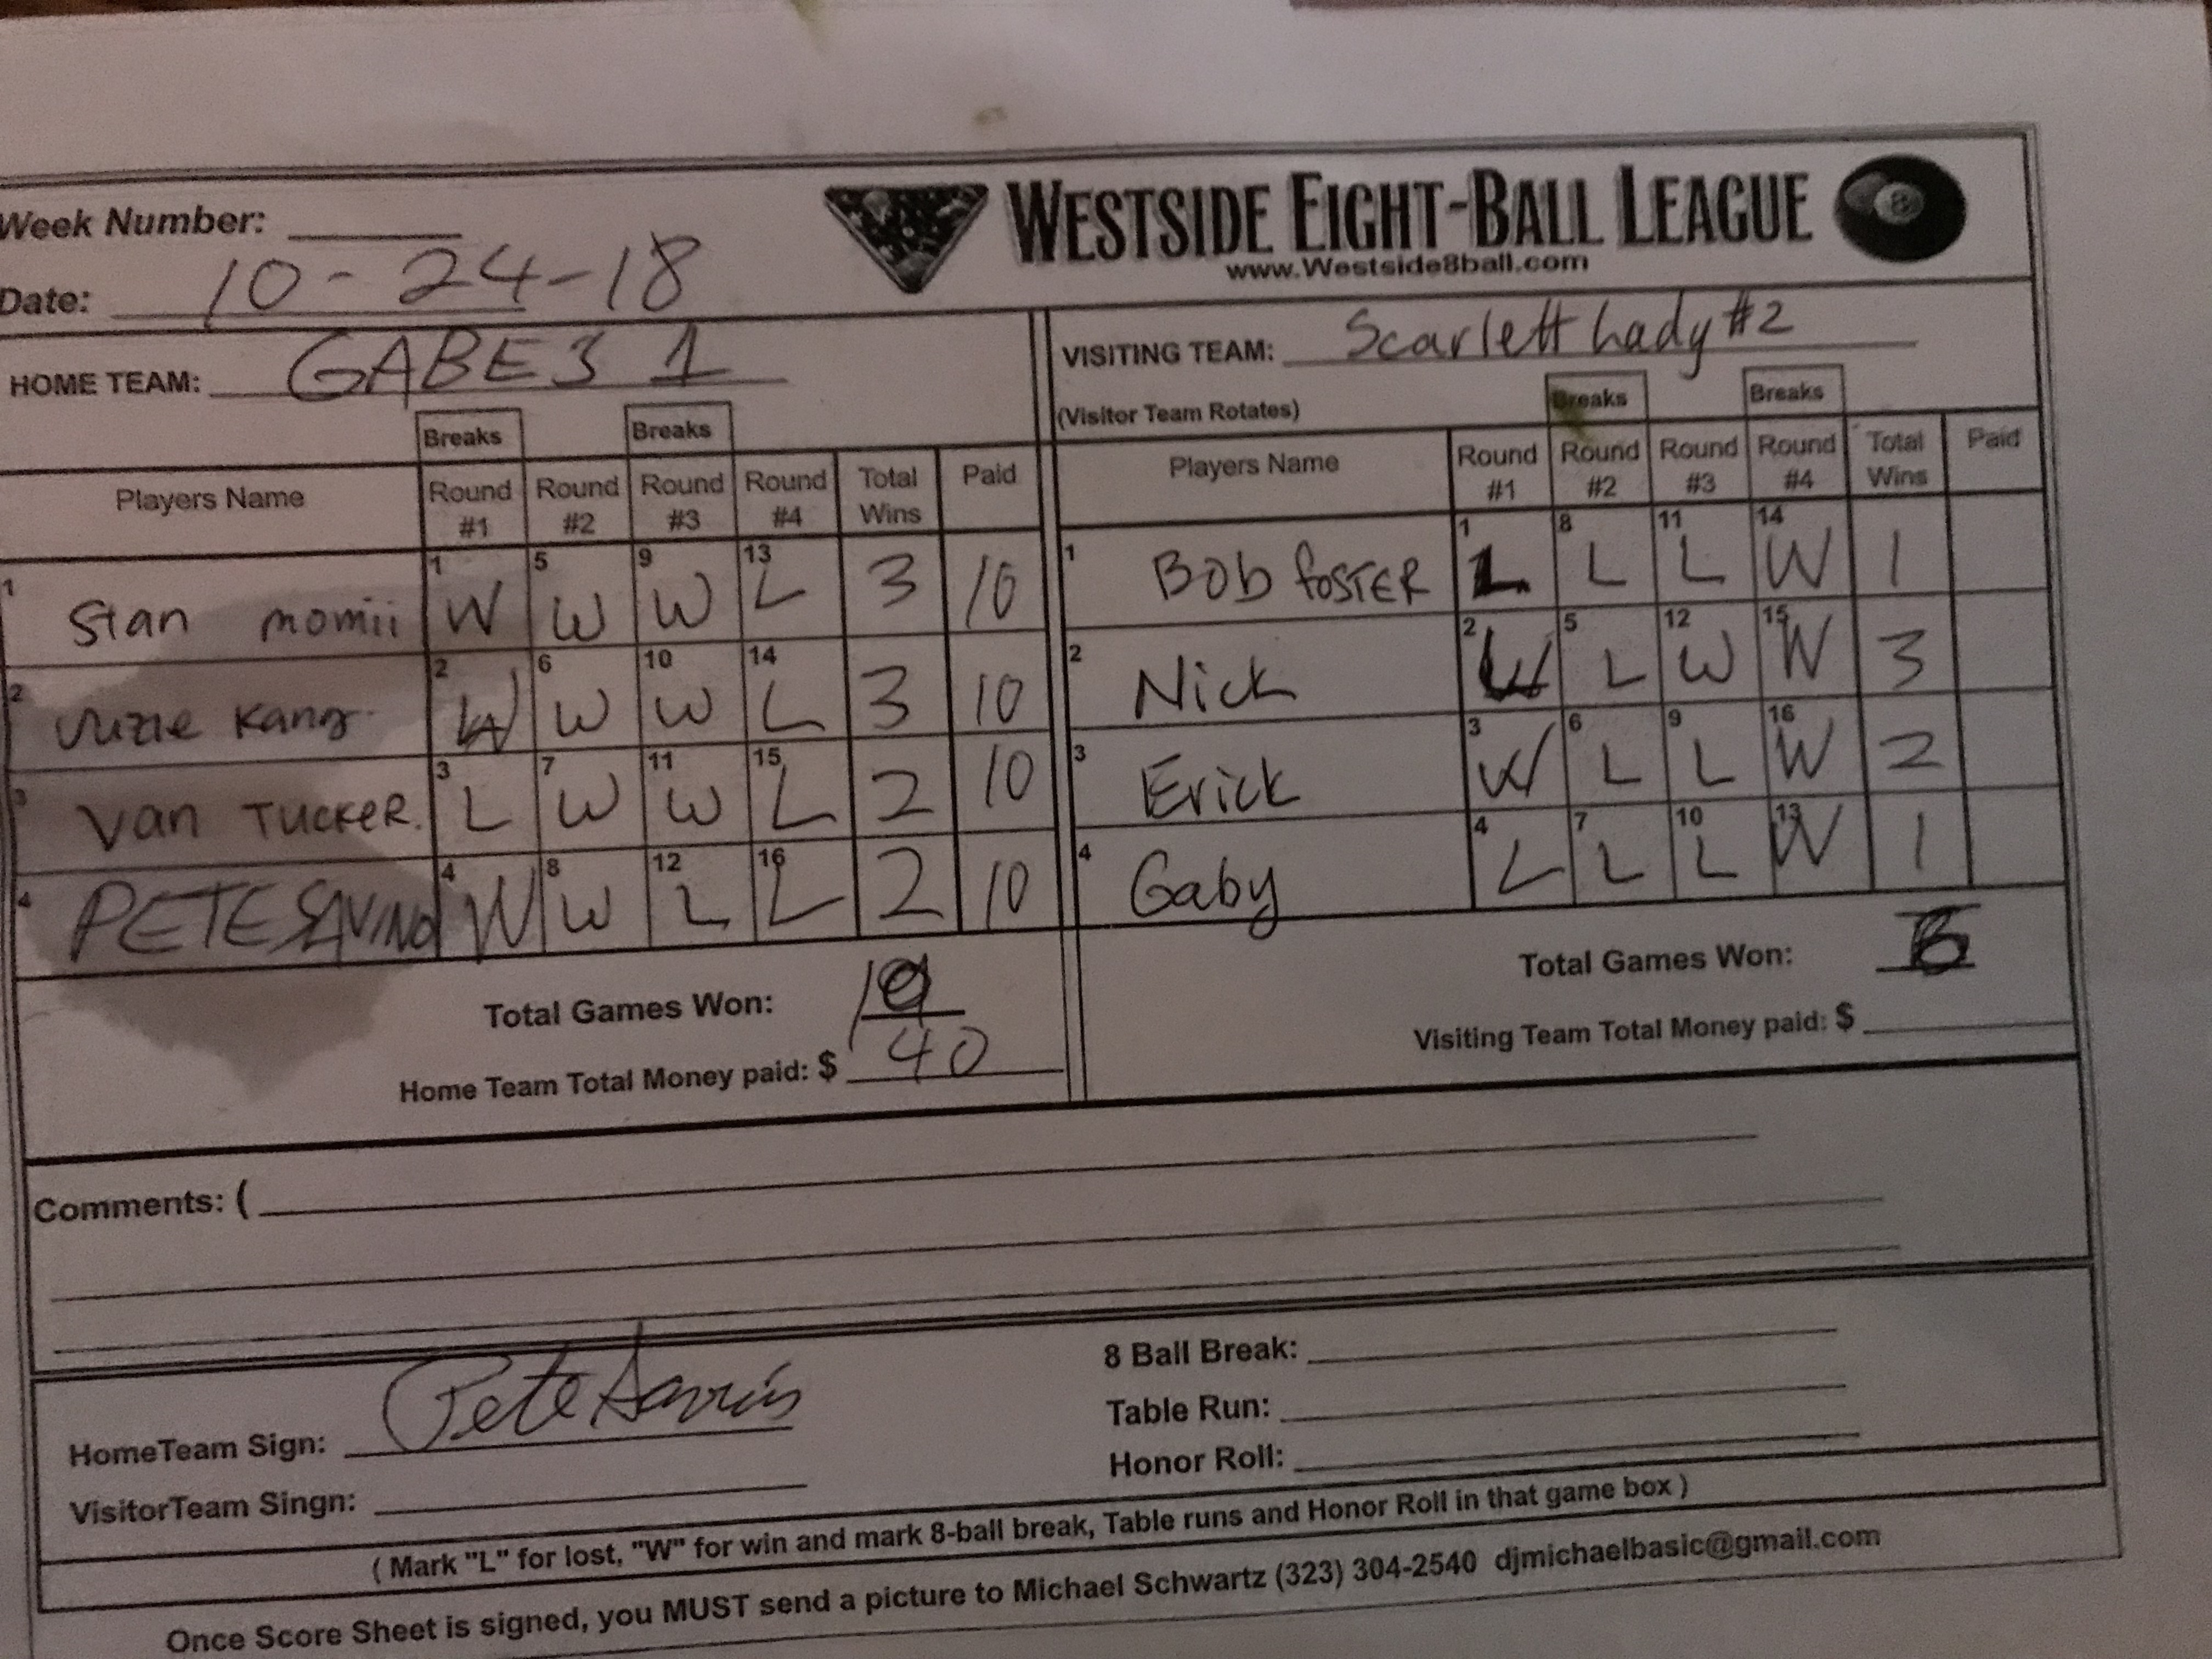 Week Number:
WESTSIDE EIGHT-BALL LEAGUE 8
www.Westside8ball.com
Date: 10-24-18
HOME TEAM: GABES 1
VISITING TEAM: Scarlett Lady #2
(Visitor Team Rotates)
Breaks Breaks
Breaks Breaks
Players Name Round #1 Round #2 Round #3 Round #4 Total Wins Paid
1 Stan momii 1 W 5 W 9 W 13 L 3 10
2 Kang 2 W 6 W 10 W 14 L 3 10
3 Van TUCKER. 3 L 7 W 11 W 15 L 2 10
4 PETE SAVINO 4 W 8 W 12 L 16 L 2 10
Total Games Won: 10
Home Team Total Money paid: $ 40
Players Name Round #1 Round #2 Round #3 Round #4 Total Wins Paid
1 Bob FOSTER 1 L 8 L 11 L 14 W 1
2 Nick 2 5 L 12 W 15 W 3
3 Erick 3 W 6 L 9 L 16 W 2
4 Gaby 4 L 7 L 10 L 13 W 1
Total Games Won:
Visiting Team Total Money paid: $
Comments: (
HomeTeam Sign: Pete
VisitorTeam Singn:
8 Ball Break:
Table Run:
Honor Roll:
( Mark "L" for lost, "W" for win and mark 8-ball break, Table runs and Honor Roll in that game box )
Once Score Sheet is signed, you MUST send a picture to Michael Schwartz (323) 304-2540 djmichaelbasic@gmail.com